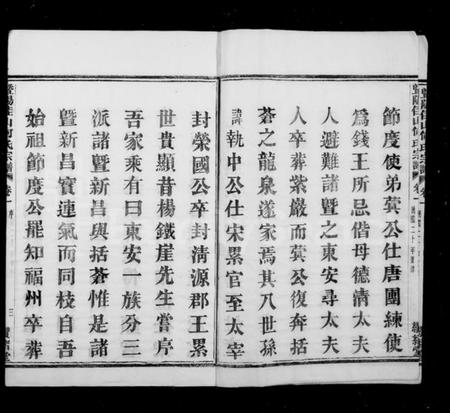 節度使弟葬公仕唐團練使
為錢王所忌偕母德清太夫
人避難諸暨之東安尋太夫
人卒葬紫巖而葬公復奔括
蒼之龍泉遂家焉其八世孫
諱執中公仕宋累官至太宰
封榮國公卒封清源郡王累
世貴顯昔楊鐵崖先生嘗序
吾家乘有曰東安一族分三
派新昌與括蒼惟是諸
暨新昌實連氣而同枝自吾
始祖節度公罷知福州卒葬
暨陽佳山何氏宗譜 卷一 序 三